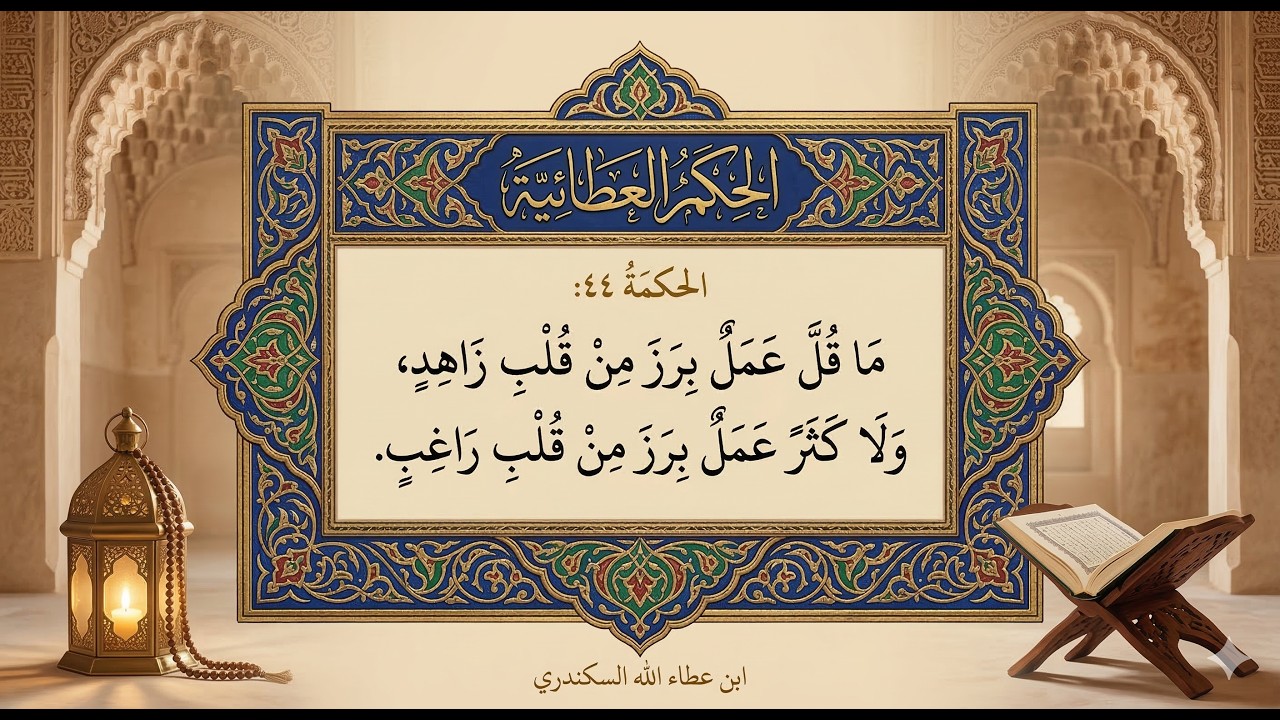 الحِكَمُ العَطَائِيَّةُ
الحكمَةُ ٤٤:
مَا قُلَّ عَمَلٌ بِرَزَ مِنْ قُلْبِ زَاهِدٍ،
وَلَا كَثَرً عَمَلٌ بِرَزَ مِنْ قُلْبِ رَاغِبٍ.
ابن عطاء الله السكندري